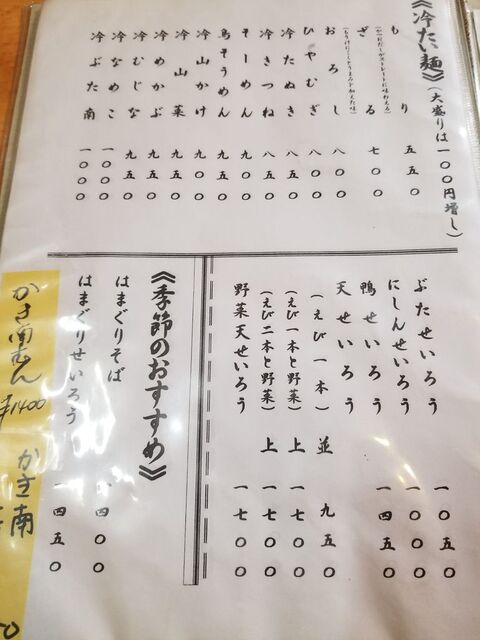 《冷たい麺》（大盛りは一〇〇円増し）
もり 五五〇
（かつおだしがストレートに味わえる）
ざる 七〇〇
おろし 八〇〇
ひやむぎ
冷たぬき 八〇〇
冷きつね 八五〇
そーめん 九〇〇
鳥そうめん 九五〇
冷山かけ 九〇〇
冷山菜 九五〇
冷めかぶ 九五〇
冷むじな 九五〇
冷なめこ 一〇〇〇
冷ぶた南 一〇〇〇
ぶたせいろう 一〇五〇
にしんせいろう 一〇五〇
鴨せいろう 一四五〇
天せいろう
（えび一本）並 九五〇
（えび一本と野菜）上 一七〇〇
（えび二本と野菜）上 一七〇〇
野菜天せいろう 一七〇〇
《季節のおすすめ》
はまぐりそば 一四〇〇
はまぐりせいろう 一四五〇
かき南ばん
¥1400
かき南